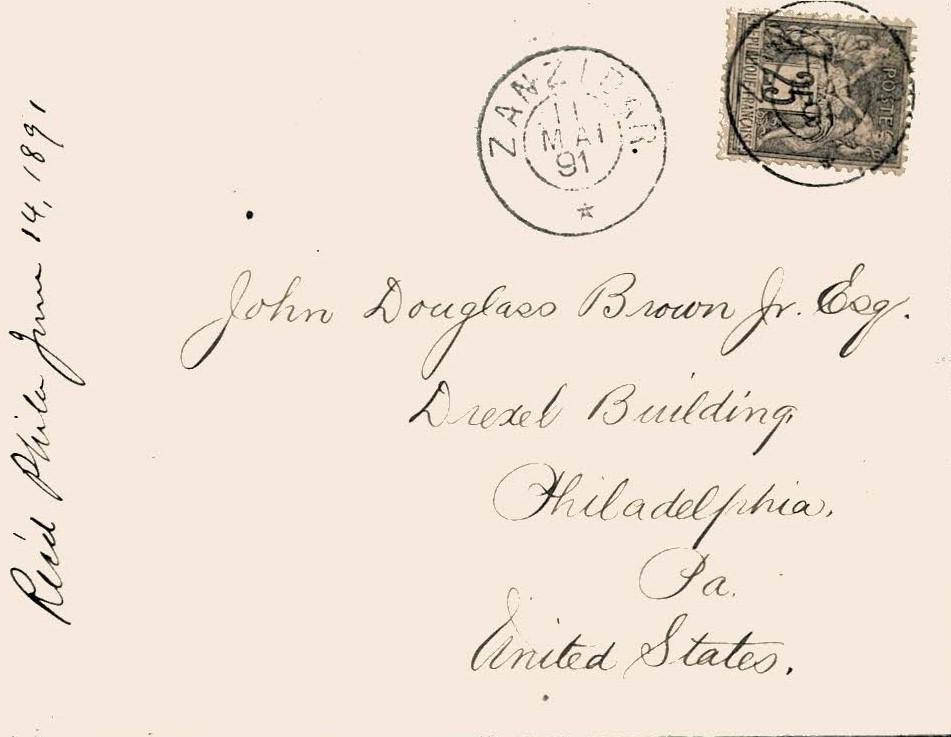 ZANZIBAR
11
MAI
91
POSTES
25
REPUBLIQUE FRANCAISE
John Douglass Brown Jr. Esq.
Drexel Building,
Philadelphia,
Pa.
United States.
Rec'd Phila June 14, 1891